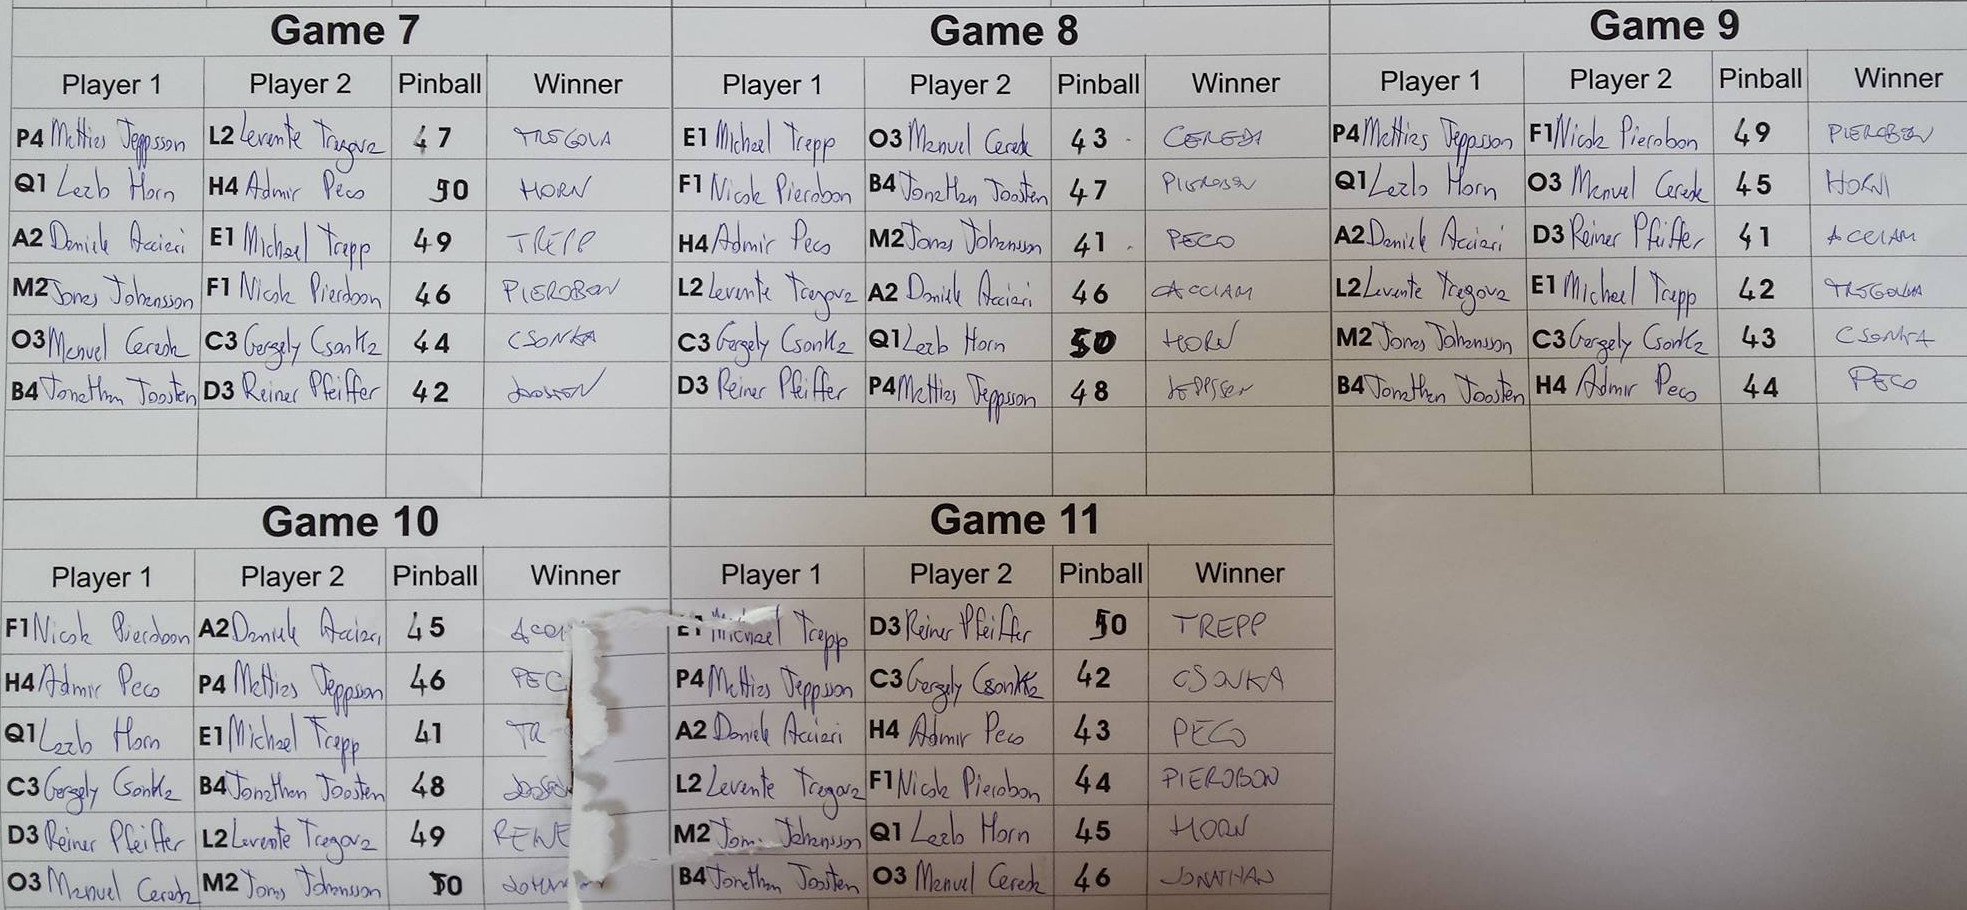 Game 7
Player 1 Player 2 Pinball Winner
P4 Mattias Jeppsson L2 Levente Tregova 47 TREGOVA
Q1 Leab Horn H4 Admir Peco 50 HORN
A2 Daniele Acciari E1 Michael Trepp 49 TREPP
M2 Jonas Johansson F1 Nicola Pierobon 46 PIEROBON
O3 Manuel Cereda C3 Gergely Csonka 44 CSONKA
B4 Jonathan Joosten D3 Reiner Pfeiffer 42 JOOSTEN
Game 8
Player 1 Player 2 Pinball Winner
E1 Michael Trepp O3 Manuel Cereda 43 CEREDA
F1 Nicola Pierobon B4 Jonathan Joosten 47 PIEROBON
H4 Admir Peco M2 Jonas Johansson 41 PECO
L2 Levente Tregova A2 Daniele Acciari 46
C3 Gergely Csonka Q1 Leab Horn 50 HORN
D3 Reiner Pfeiffer P4 Mattias Jeppsson 48
Game 9
Player 1 Player 2 Pinball Winner
P4 Mattias Jeppsson F1 Nicola Pierobon 49 PIEROBON
Q1 Leab Horn O3 Manuel Cereda 45 HORN
A2 Daniele Acciari D3 Reiner Pfeiffer 41 ACCIARI
L2 Levente Tregova E1 Michael Trepp 42 TREGOVA
M2 Jonas Johansson C3 Gergely Csonka 43 CSONKA
B4 Jonathan Joosten H4 Admir Peco 44 PECO
Game 10
Player 1 Player 2 Pinball Winner
F1 Nicola Pierobon A2 Daniele Acciari 45
H4 Admir Peco P4 Mattias Jeppsson 46 PEC
Q1 Leab Horn E1 Michael Trepp 41 TR
C3 Gergely Csonka B4 Jonathan Joosten 48
D3 Reiner Pfeiffer L2 Levente Tregova 49 REINE
O3 Manuel Cereda M2 Jonas Johansson 50
Game 11
Player 1 Player 2 Pinball Winner
E1 Michael Trepp D3 Reiner Pfeiffer 50 TREPP
P4 Mattias Jeppsson C3 Gergely Csonka 42 CSONKA
A2 Daniele Acciari H4 Admir Peco 43 PECO
L2 Levente Tregova F1 Nicola Pierobon 44 PIEROBON
M2 Jonas Johansson Q1 Leab Horn 45 HORN
B4 Jonathan Joosten O3 Manuel Cereda 46 JONATHAN